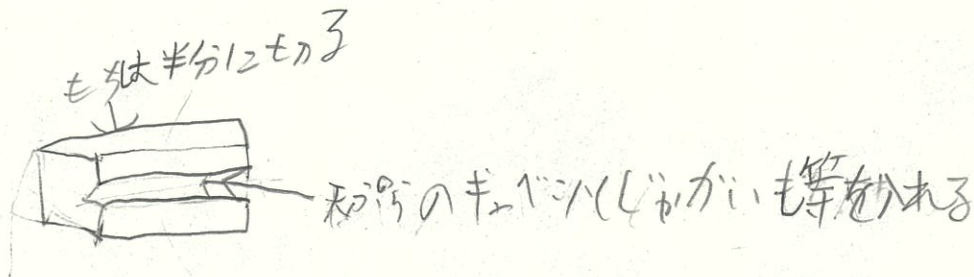 もちは半分に切る
のキャベツ(じゃがいも等を入れる